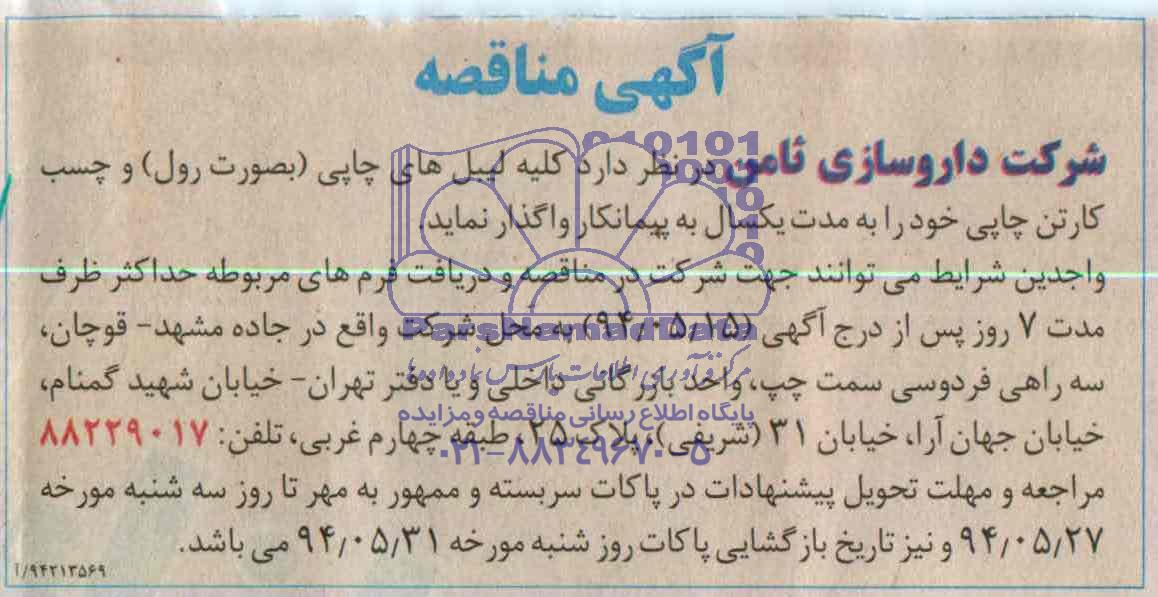 آگهی مناقصه
شرکت داروسازی ثامن در نظر دارد کلیه لیبل های چاپی (بصورت رول) و چسب
کارتن چاپی خود را به مدت یکسال به پیمانکار واگذار نماید.
واجدین شرایط می توانند جهت شرکت در مناقصه و دریافت فرم های مربوطه حداکثر ظرف
مدت ۷ روز پس از درج آگهی (۹۴/۰۵/۱۵) به محل شرکت واقع در جاده مشهد- قوچان،
سه راهی فردوسی سمت چپ، واحد بازرگانی داخلی و یا دفتر تهران- خیابان شهید گمنام،
خیابان جهان آرا، خیابان ۳۱ (شریفی)، پلاک ۲۵، طبقه چهارم غربی، تلفن: ۸۸۲۲۹۰۱۷
مراجعه و مهلت تحویل پیشنهادات در پاکات سربسته و ممهور به مهر تا روز سه شنبه مورخه
۹۴/۰۵/۲۷ و نیز تاریخ بازگشایی پاکات روز شنبه مورخه ۹۴/۰۵/۳۱ می باشد.
۹۴۲۱۳۵۶۹/آ
ParsNamadData
مرکز فرآوری اطلاعات پارس نماد داده ها
پایگاه اطلاع رسانی مناقصه و مزایده
۰۲۱-۸۸۳۴۹۶۷۰-۵